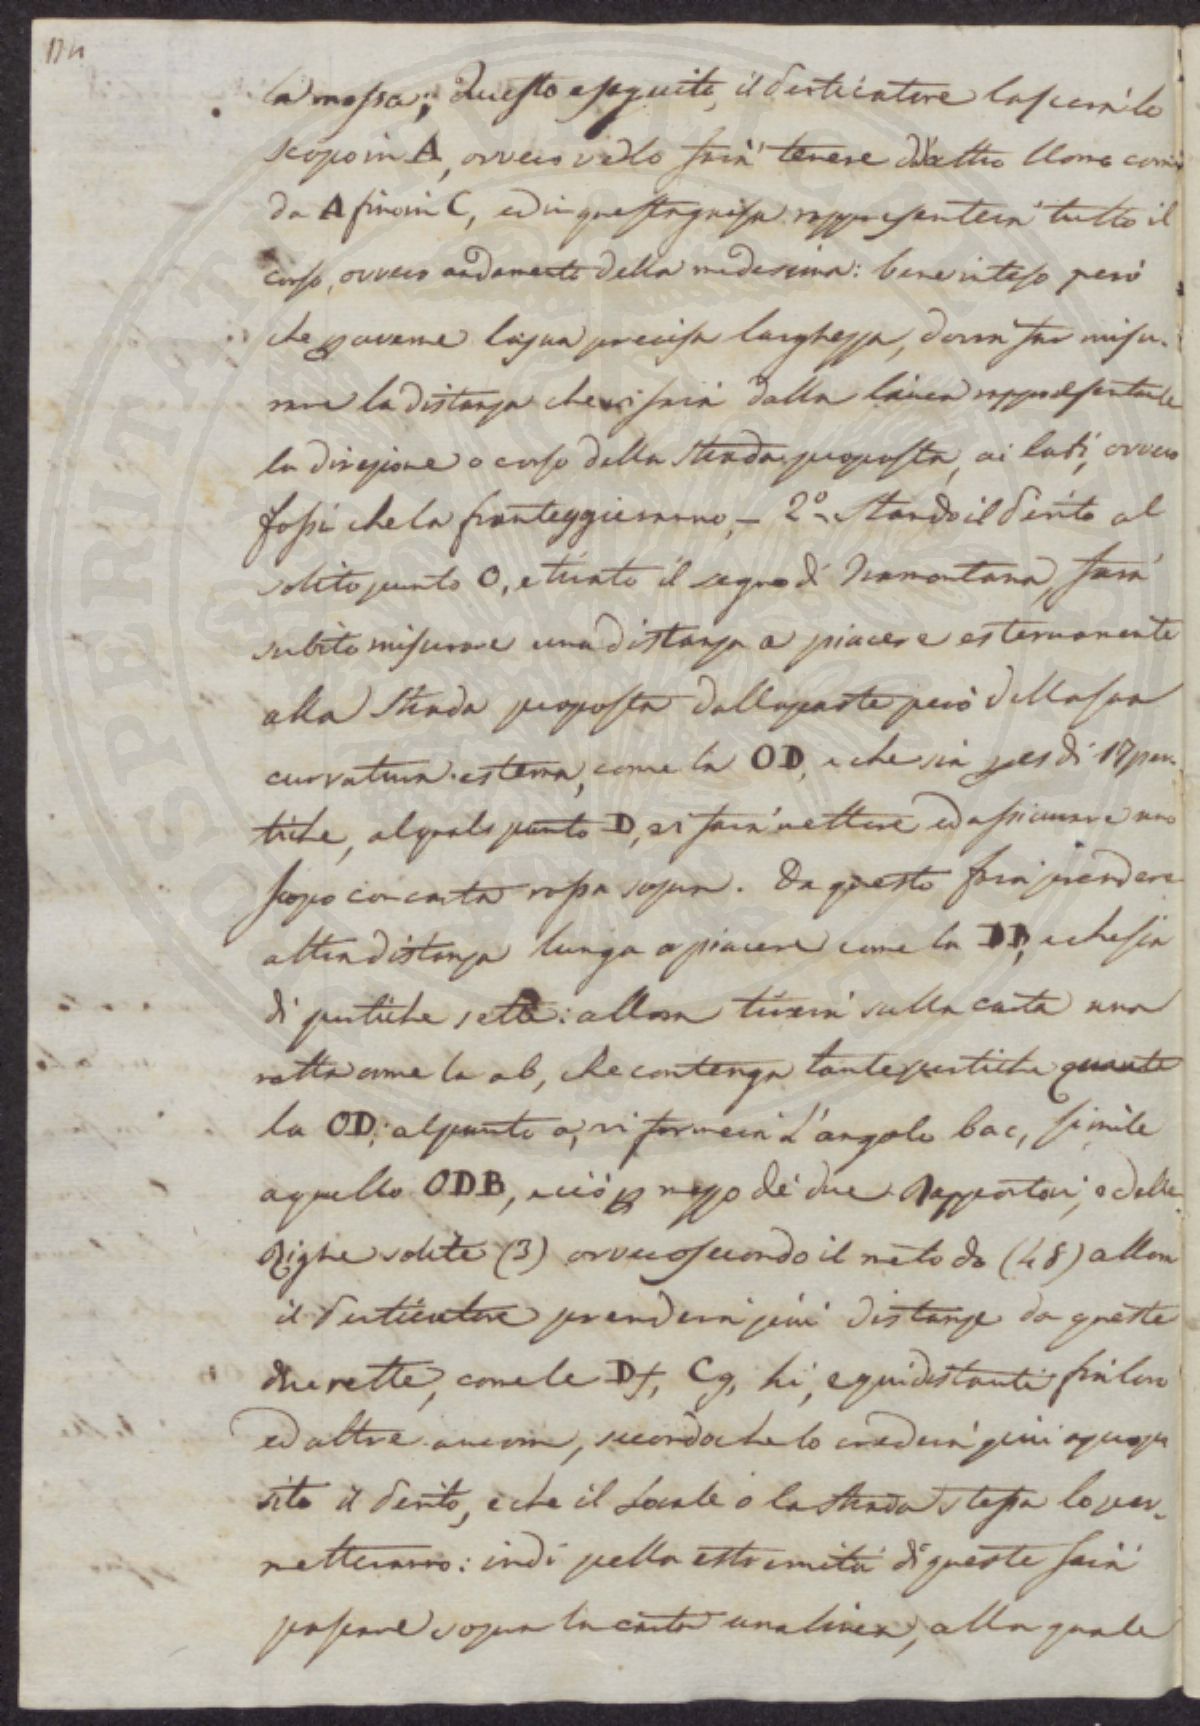 174
la mossa; Questo eseguito, il Perticatore lascerà lo
scopo in A, ovvero vedlo farà tenere d'altro Uomo com
da A fino in C, ed in questa guisa rappresenterà tutto il
corso, ovvero andamento della medesima: bene inteso però
che p averne la sua precisa larghezza, dovrà far misu-
rare la distanza che vi sarà dalla linea rappresentante
la direzione o corso della strada proposta, ai lati, ovvero
fossi che la fronteggieranno. - 2.° Stando il Perito al
solito punto O, e tirato il segno di Tramontana, farà
subito misurare una distanza a piacere esternamente
alla Strada proposta dalla parte però della sua
curvatura esterna, come la OD, e che sia p es di 17 per-
tiche, al quale punto D, vi farà mettere ed assicurare uno
scopo con carta rossa sopra. Da questo farà prendere
altra distanza lunga a piacere come la DB, e che sia
di pertiche sette: allora tirerà sulla carta una
retta come la ab, che contenga tante pertiche quante
la OD; al punto a, vi formerà l'angolo bac, simile
a quello ODB, e ciò p mezzo de' due Rapportori, o delle
Righe solite (3) ovvero secondo il metodo (48) allora
il Perticatore prenderà più distanze da queste
due rette, come le Df, Cg, hi, equidistanti fra loro
ed altre ancora, secondo che lo crederà più a propo
sito il Perito, e che il Locale o la strada stessa lo per-
metteranno: indi pella estremità di queste farà
passare sopra la carta una linea, alla quale